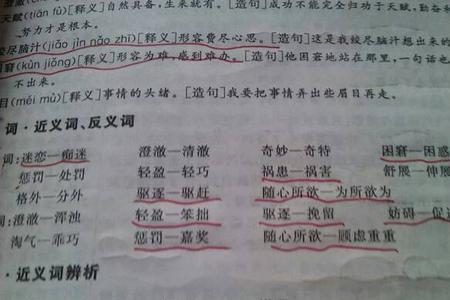 天赋(tiān fù)[释义]自然具备，生来就有。[造句]成功不能完全归功于天赋，勤奋
努力才是根本。
尽脑汁(jiǎo jìn nǎo zhī)[释义]形容费尽心思。[造句]这是我绞尽脑汁想出来的
窘(kùn jiǒng)[释义]形容为难，感到难办。[造句]他困窘地站在那里，一句话也
不出来。
目(méi mù)[释义]事情的头绪。[造句]我要把事情弄出些眉目再走。
词·近义词、反义词
词:迷恋—痴迷 澄澈—清澈 奇妙—奇特 困窘—困惑
惩罚—处罚 轻盈—轻巧 祸患—祸害 舒展—伸展
格外—分外 驱逐—驱赶 随心所欲—为所欲为
词:澄澈—浑浊 轻盈—笨拙 驱逐—挽留 妨碍—促
淘气—乖巧 惩罚—嘉奖 随心所欲—顾虑重重
·近义词辨析